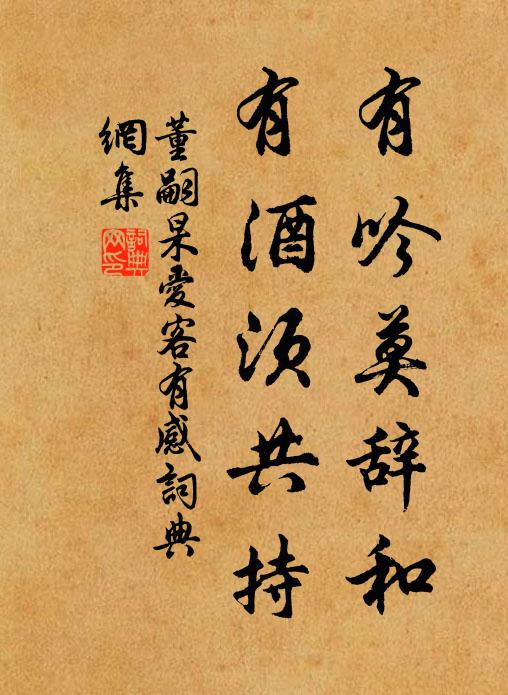 有吟莫辞和
有酒须共持
董嗣杲爱客有感詞典
網集
詞典網印